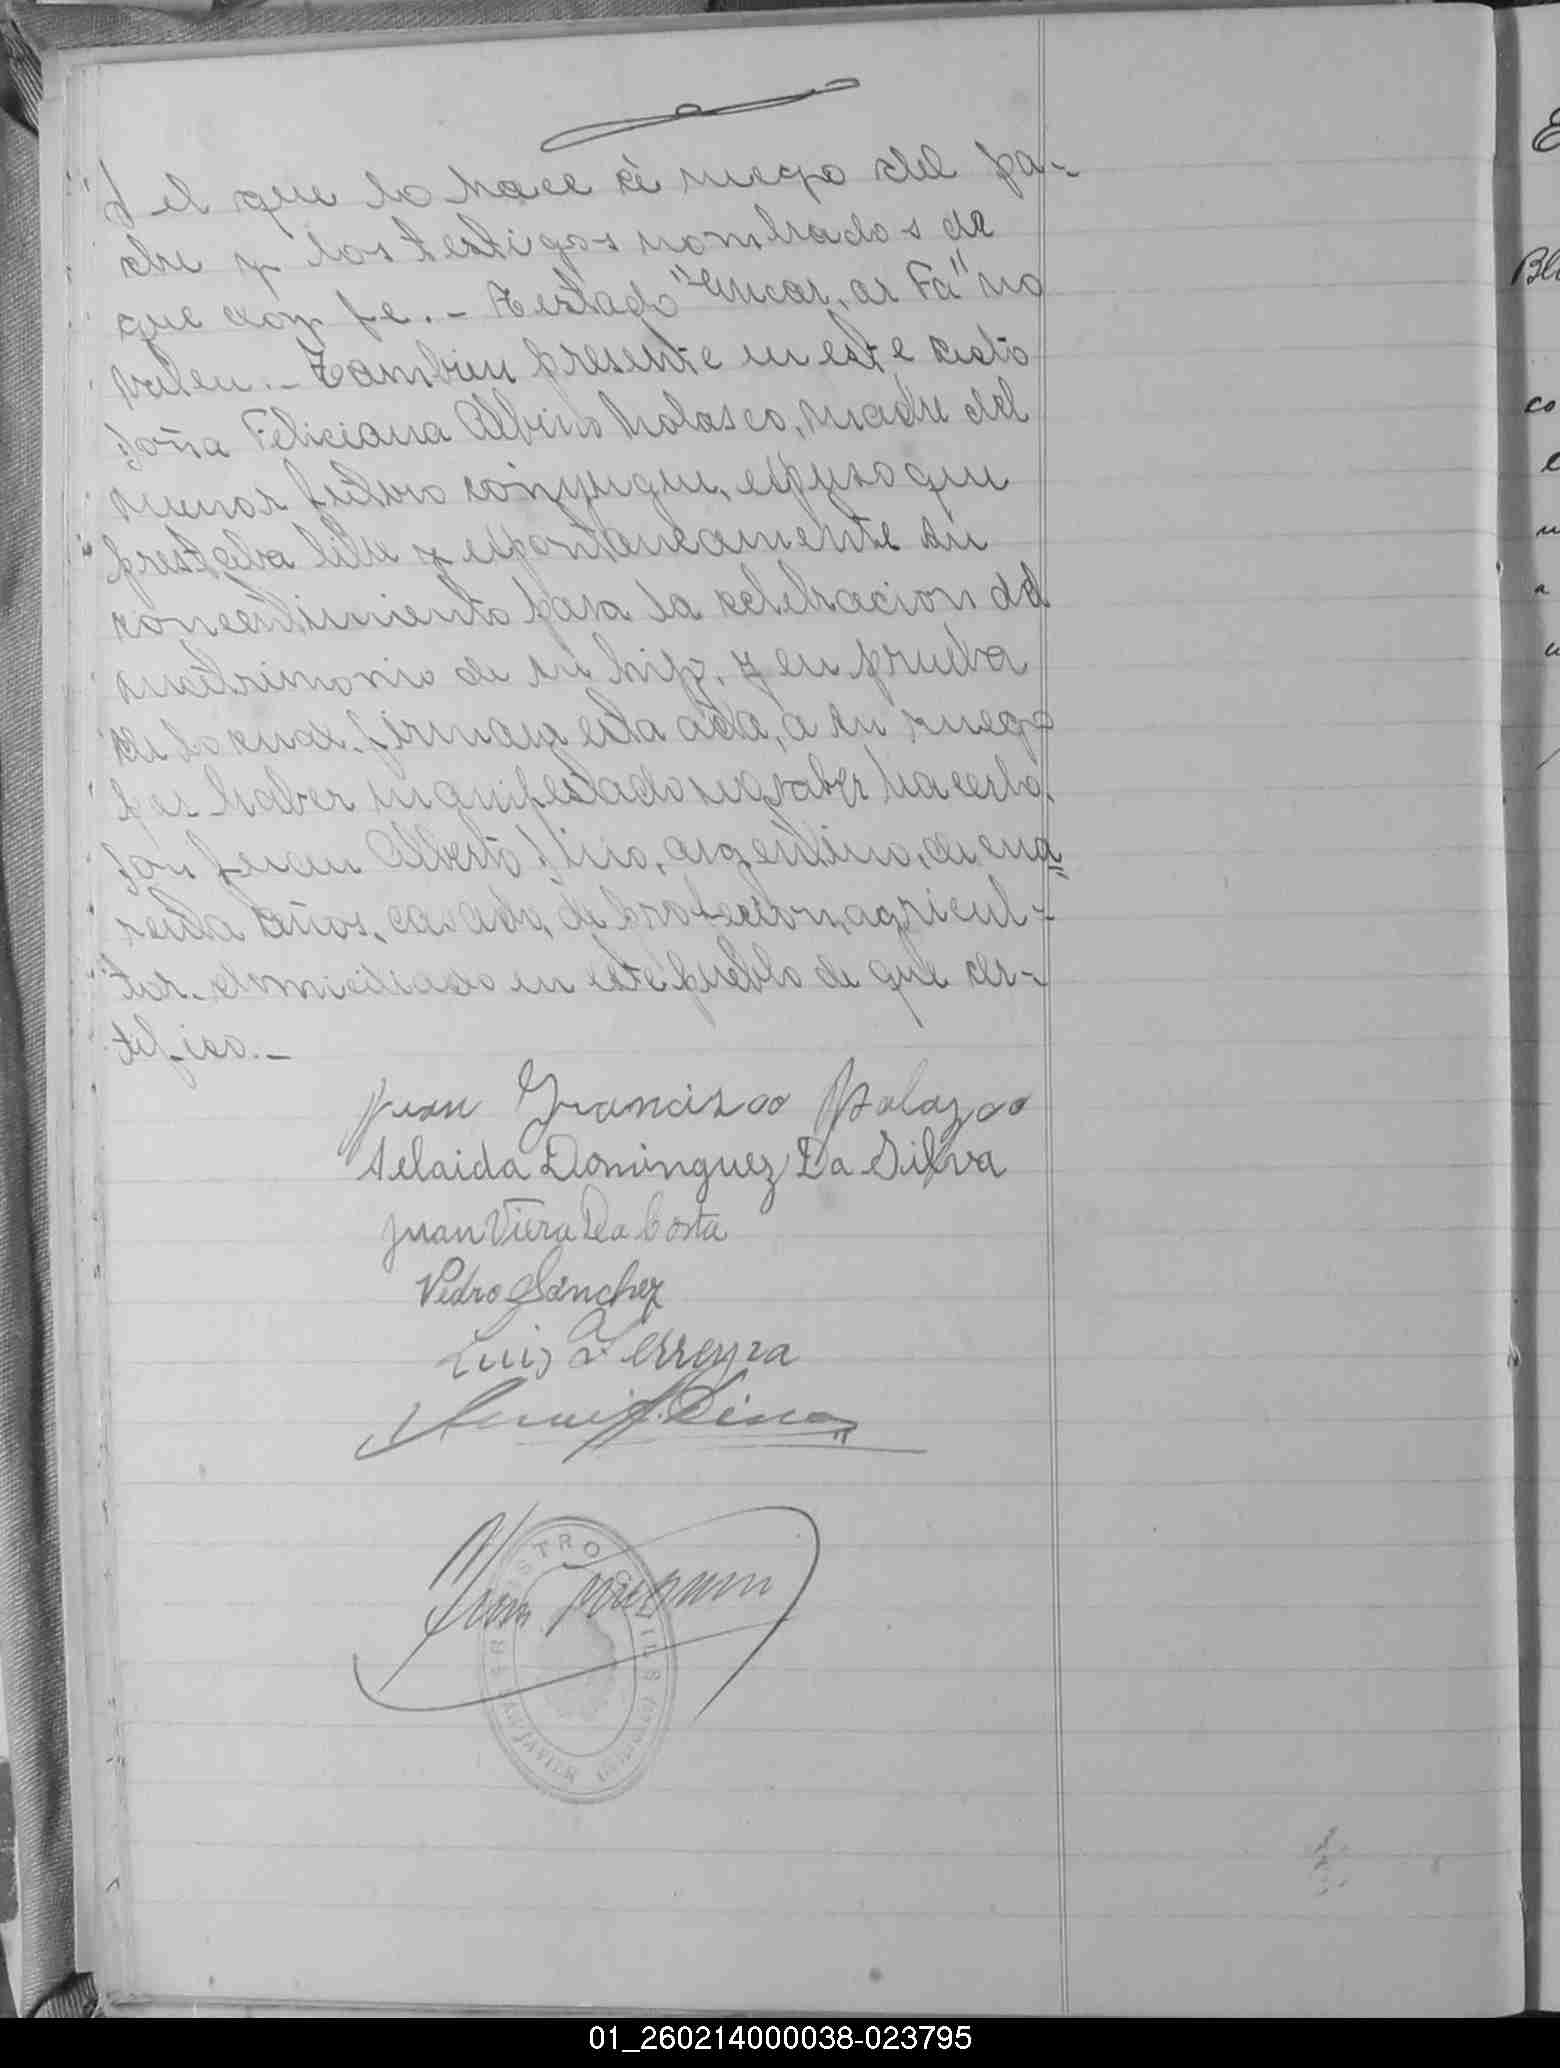 y el que lo hace á ruego del pa-
dre y los testigos nombrados de
que doy fe.- Testado " ar Fa" no
valen.- Tambien presente en este acto
doña Feliciana Albino Nolasco, madre del
menor futuro cónyugue, expuso que
prestaba libre y espontaneamente su
consentimiento para la celebracion del
matrimonio de su hijo. y en prueba
de lo cual, firma esta acta, a su ruego
por haber manifestado no saber hacerlo,
don Juan Alberto Lino, argentino, de cua
renta años, casado, de profecion, agricul-
tor. domiciliado en este pueblo de que cer-
tifico.-
Juan Francisco Nolazco
Adelaida Dominguez Da Silva
Juan Viera Da Costa
Pedro Sánchez
Luis Ferreyra
Juan A. Lino
Juan
REGISTRO CIVIL
SAN JAVIER MISIONES
E
Bl
co
01_260214000038-023795